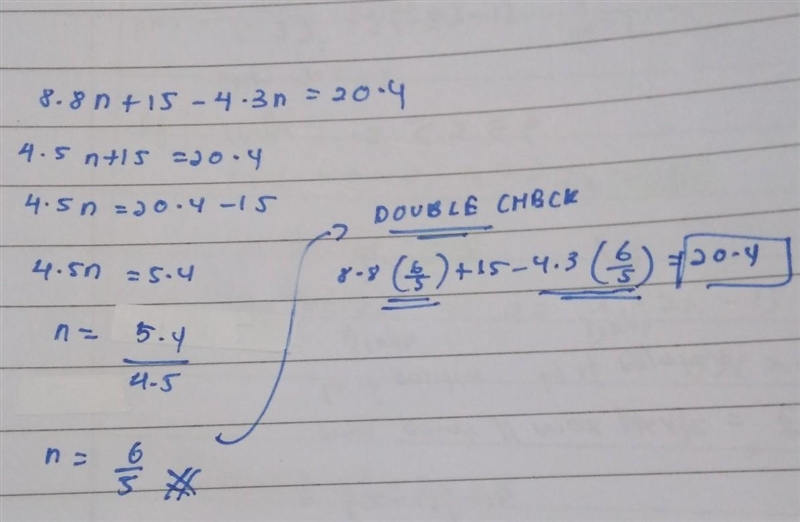 8.8n+15-4.3n=20.4
4.5n+15=20.4
4.5n=20.4-15
4.5n=5.4
n=5.4/4.5
n=6/5
DOUBLE CHECK
8.8(6/5)+15-4.3(6/5)=20.4